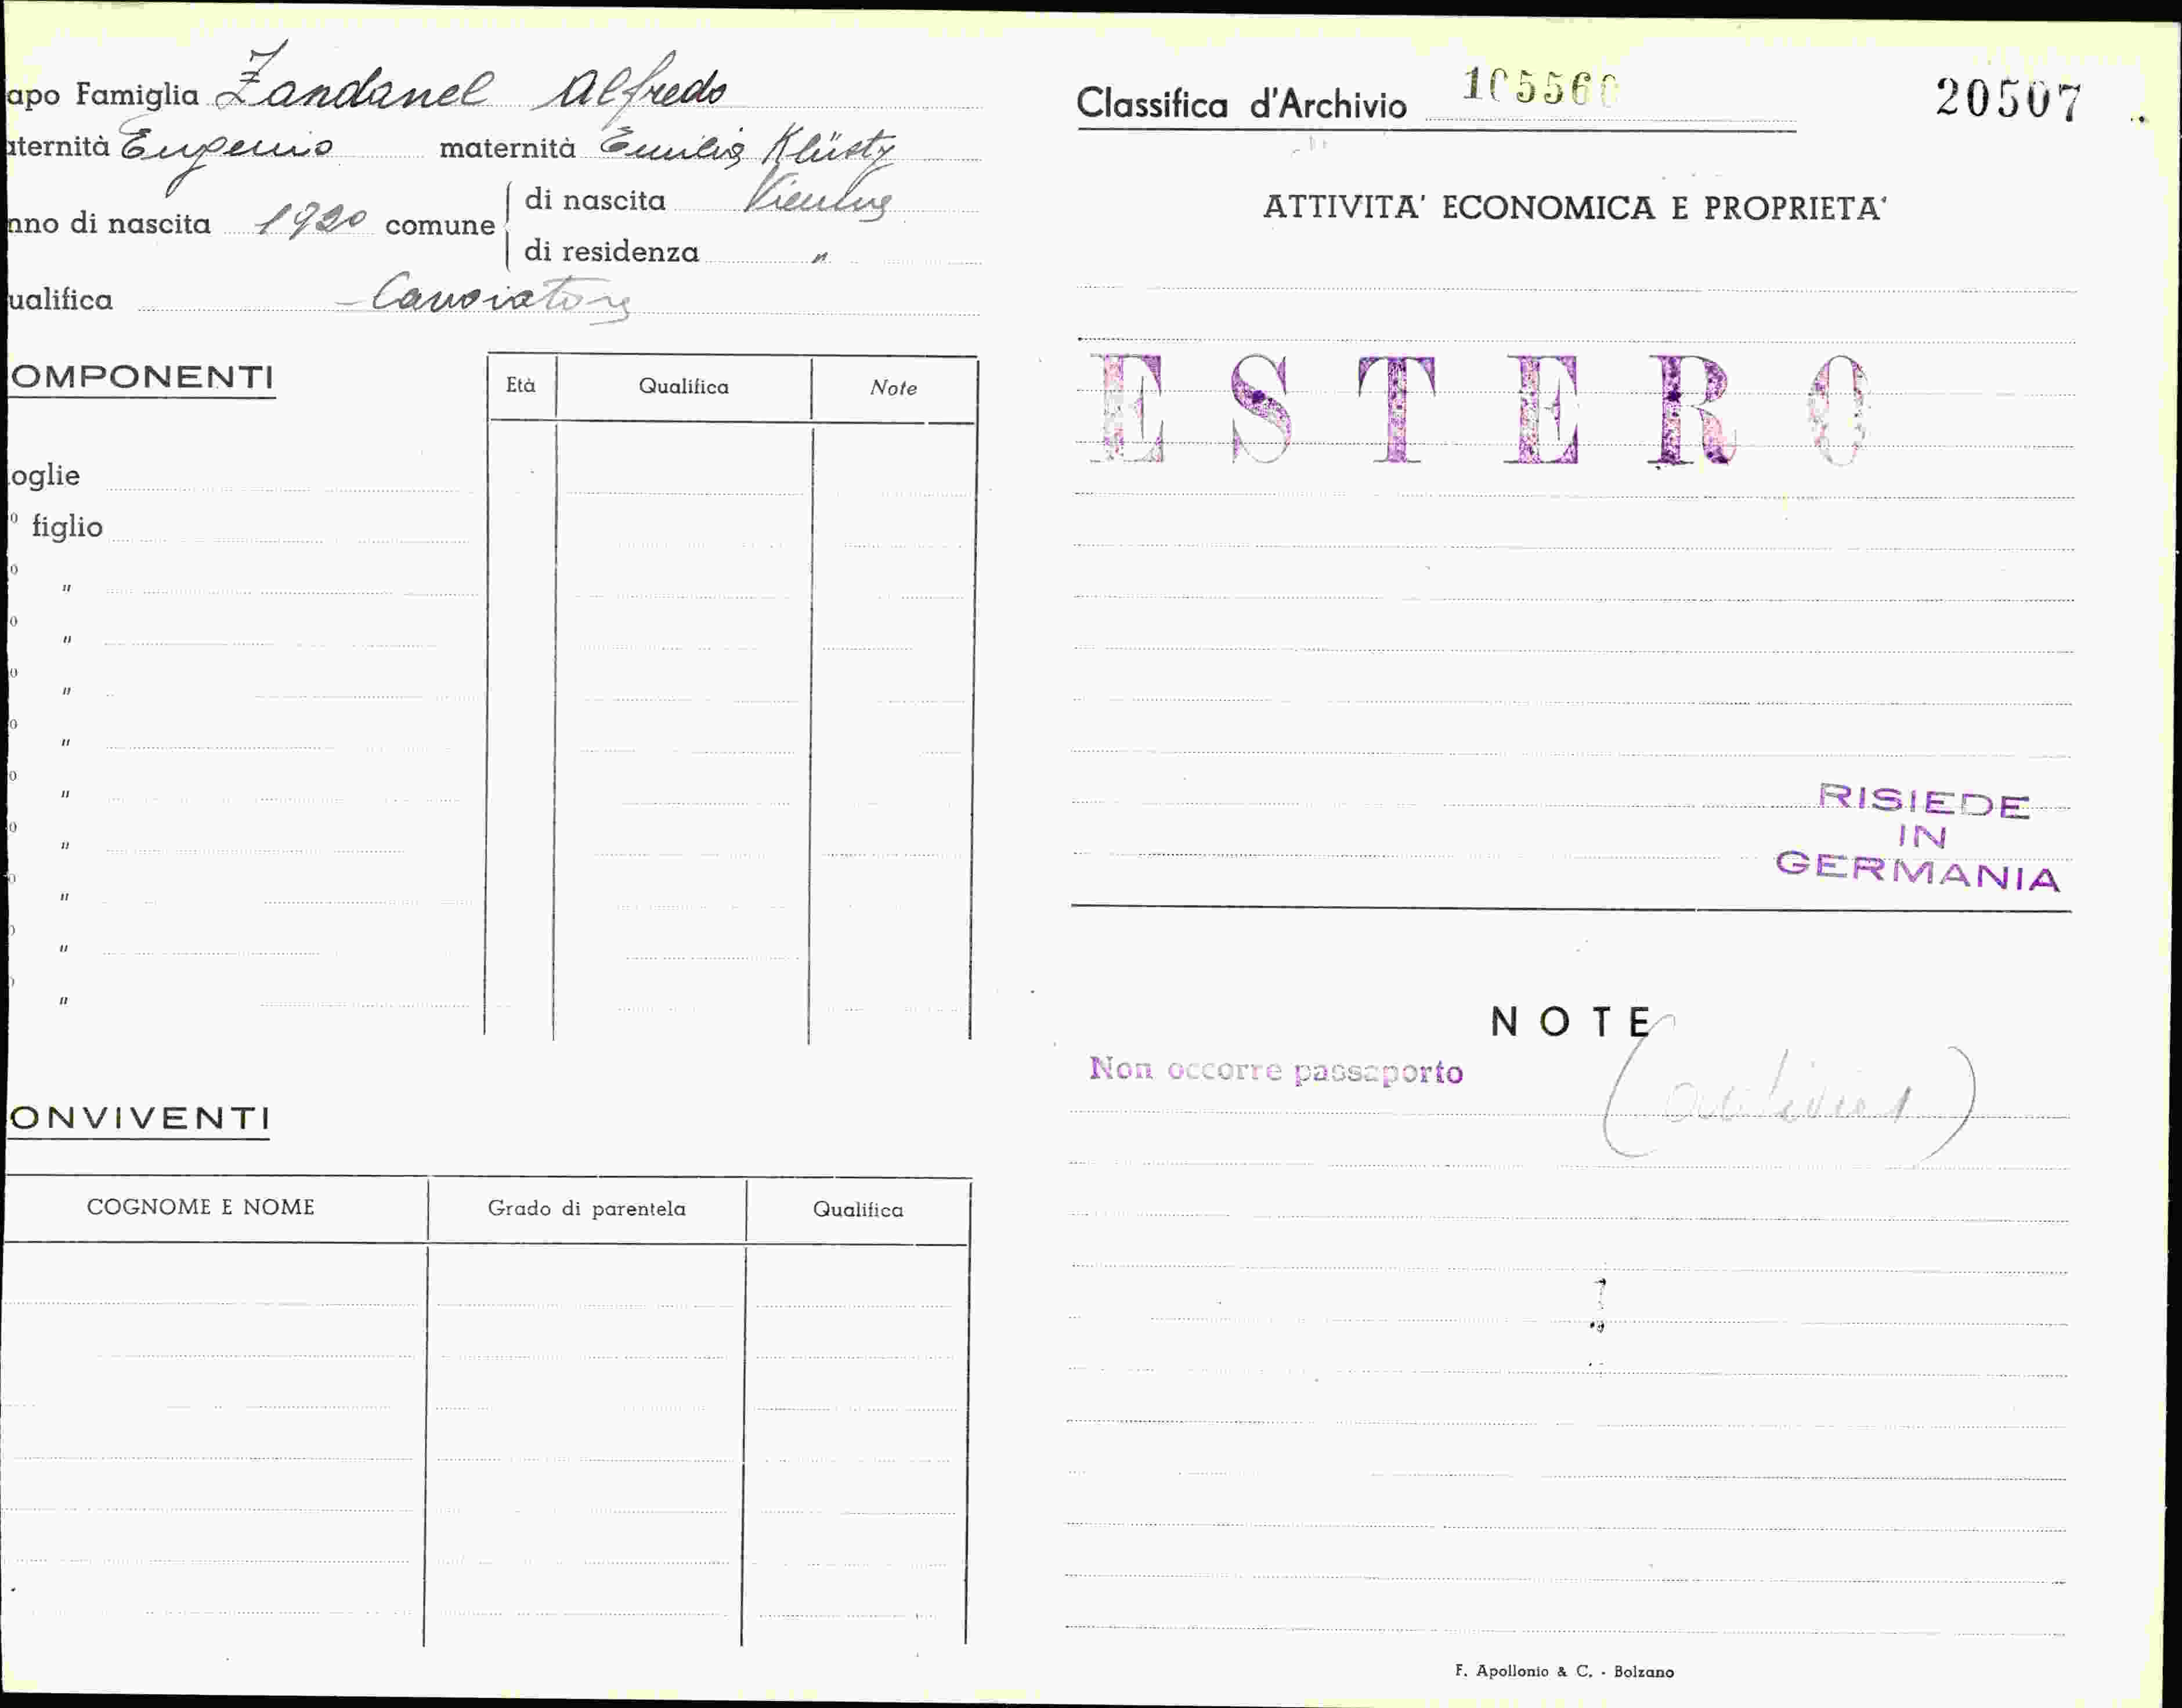 apo Famiglia Zandanel Alfredo
aternità Eugenio maternità Emilia Klüsty
nno di nascita 1920 comune di nascita Vienna
di residenza "
ualifica Canoiatore
OMPONENTI
Età Qualifica Note
oglie
o figlio
o "
o "
o "
o "
o "
o "
o "
o "
o "
ONVIVENTI
COGNOME E NOME Grado di parentela Qualifica
Classifica d'Archivio 105560 20507
ATTIVITA' ECONOMICA E PROPRIETA'
ESTERO
RISIEDE
IN
GERMANIA
NOTE
Non occorre passaporto
F. Apollonio & C. - Bolzano